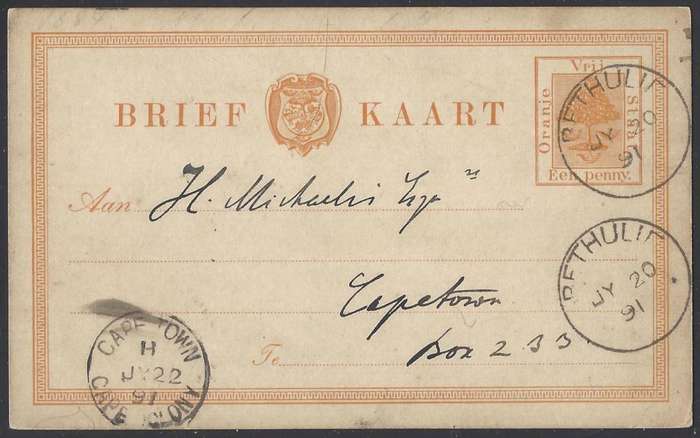 BRIEF KAART
Oranje Vrij
Een penny.
BETHULIE
JY 20
91
Aan H. Michaelis Esqre
BETHULIE
JY 20
91
Capetown
Te Box 233
CAPE TOWN
H
JY 22
91
CAPE COLONY